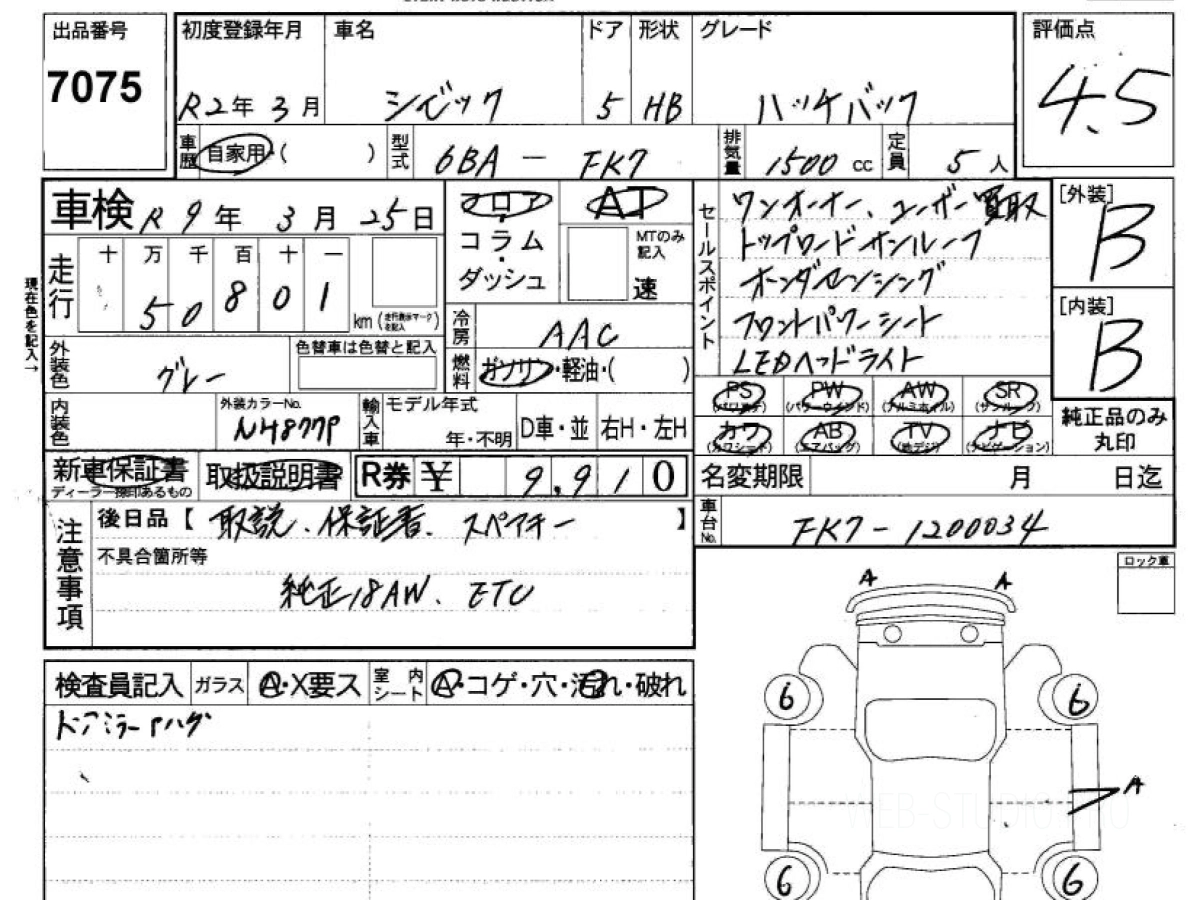 出品番号
7075
初度登録年月
R2年 3月
車名
シビック
ドア
5
形状
HB
グレード
ハッチバック
評価点
4.5
車歴
自家用・( )
型式
6BA - FK7
排気量
1500 cc
定員
5人
車検 R 9年 3月 25日
走行
十 万 千 百 十 一
5 0 8 0 1
km (走行表示マークを記入)
現在色を記入→
フロア
・
コラム
・
ダッシュ
AT
MTのみ記入
速
冷房
AAC
燃料
ガソリン・軽油・( )
セールスポイント
ワンオーナー、ユーザー買取
トップロードサンルーフ
ホンダセンシング
フロントパワーシート
LEDヘッドライト
[外装]
B
[内装]
B
外装色
グレー
色替車は色替と記入
内装色
外装カラーNo.
NH877P
輸入車
モデル年式
年・不明
D車・並
右H・左H
PS (パワステ)
PW (パワーウインド)
AW (アルミホイル)
SR (サンルーフ)
カワ (カワシート)
AB (エアバッグ)
TV (地デジ)
ナビ (ナビゲーション)
純正品のみ
丸印
新車保証書
ディーラー捺印あるもの
取扱説明書
R券 ¥ 9,910
名変期限 月 日迄
車台No.
FK7-1200034
注意事項
後日品【 取説、保証書、スペアキー 】
不具合箇所等
純正18AW、ETC
ロック車
検査員記入
ガラス
A・X要ス
室内シート
A・コゲ・穴・汚れ・破れ
ドアミラーAハゲ
A A
6 6
A
WEB-STUDIO
6 6